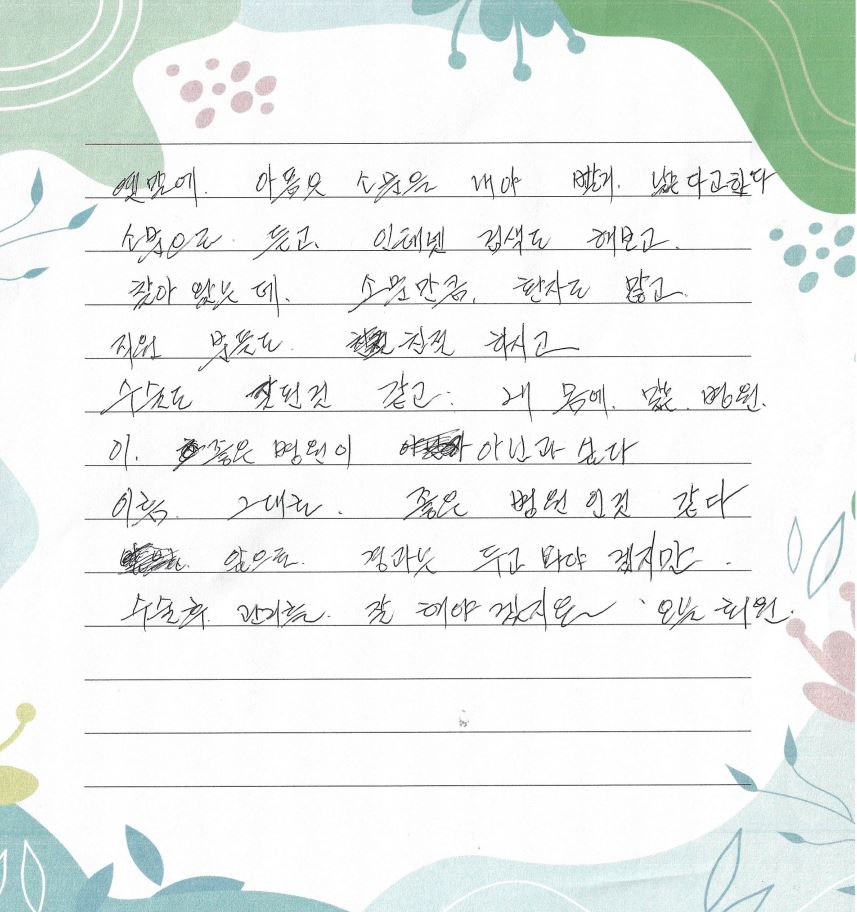 옛말에. 아픔은 소문을 내야 빨리. 낳는다고한다
소문으로 듣고. 인테넷 검색도 해보고.
찾아 왔는데. 소문만큼. 환자도 많고.
직원 분들도. 친절 하시고
수술도 잘된것 같고. 내 몸에. 맞는. 병원.
이. 좋은 병원이 아닌가 싶다
이름. 그대로. 좋은 병원 인것 같다
앞으로. 경과는 두고 봐야 겠지만.
수술후. 관리를. 잘 해야 겠지요~ 오늘 퇴원.